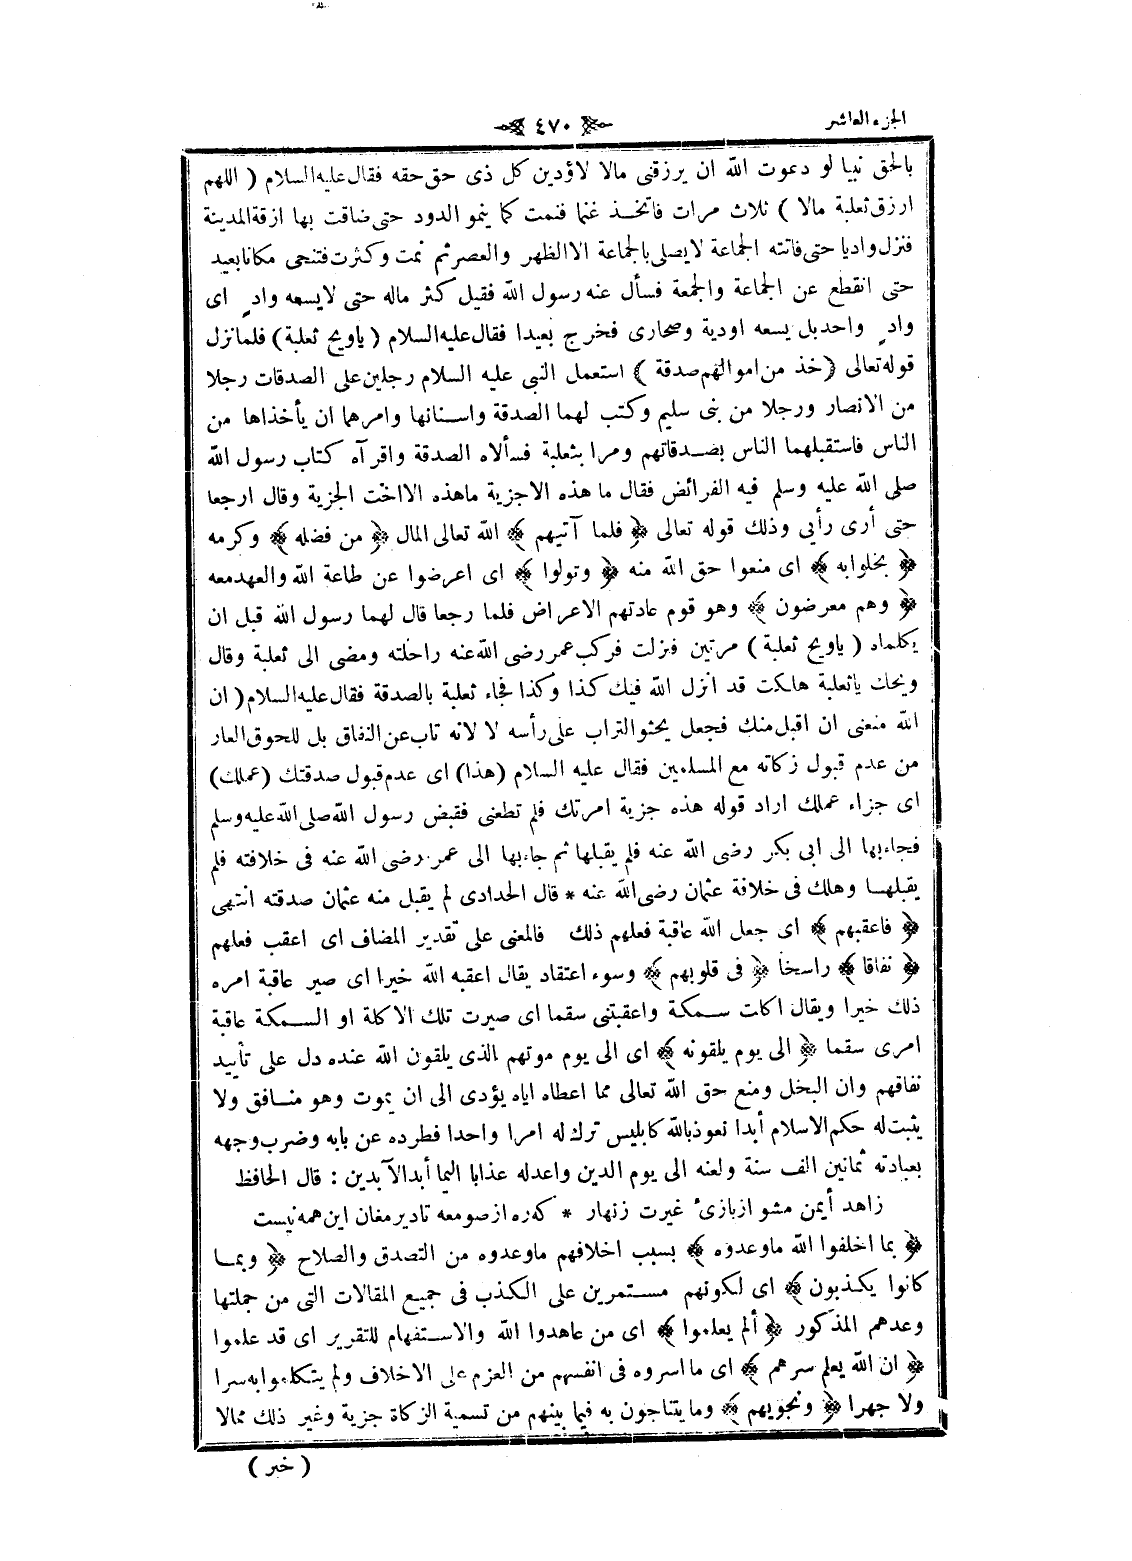 الجزء العاشر
﴿ ٤٧٠ ﴾
بالحق نبيا لو دعوت الله ان يرزقنى مالا لاؤدين كل ذى حق حقه فقال عليه السلام ( اللهم
ارزق ثعلبة مالا ) ثلاث مرات فاتخذ غنما فنمت كما ينمو الدود حتى ضاقت بها ازقة المدينة
فنزل واديا حتى فاتته الجماعة لايصلى بالجماعة الا الظهر والعصر ثم نمت وكثرت فتنحى مكانا بعيد
حتى انقطع عن الجماعة والجمعة فسأل عنه رسول الله فقيل كثر ماله حتى لايسعه وادٍ اى
وادٍ واحد بل يسعه اودية وصحارى فخرج بعيدا فقال عليه السلام ( ياويح ثعلبة ) فلما نزل
قوله تعالى ( خذ من اموالهم صدقة ) استعمل النبى عليه السلام رجلين على الصدقات رجلا
من الانصار ورجلا من بنى سليم وكتب لهما الصدقة واسنانها وامرهما ان يأخذاها من
الناس فاستقبلهما الناس بصدقاتهم ومرا بثعلبة فسألاه الصدقة واقرآه كتاب رسول الله
صلى الله عليه وسلم فيه الفرائض فقال ما هذه الاجزية ماهذه الااخت الجزية وقال ارجعا
حتى أرى رأيى وذلك قوله تعالى ﴿ فلما آتيهم ﴾ الله تعالى المال ﴿ من فضله ﴾ وكرمه
﴿ بخلوا به ﴾ اى منعوا حق الله منه ﴿ وتولوا ﴾ اى اعرضوا عن طاعة الله والعهد معه
﴿ وهم معرضون ﴾ وهو قوم عادتهم الاعراض فلما رجعا قال لهما رسول الله قبل ان
يكلماه ( ياويح ثعلبة ) مرتين فنزلت فركب عمر رضى الله عنه راحلته ومضى الى ثعلبة وقال
ويحك ياثعلبة هلكت قد انزل الله فيك كذا وكذا فجاء ثعلبة بالصدقة فقال عليه السلام ( ان
الله منعنى ان اقبل منك فجعل يحثو التراب على رأسه لا لانه تاب عن النفاق بل للحوق العار
من عدم قبول زكاته مع المسلمين فقال عليه السلام (هذا) اى عدم قبول صدقتك (عملك)
اى جزاء عملك اراد قوله هذه جزية امرتك فلم تطعنى فقبض رسول الله صلى الله عليه وسلم
فجاء بها الى ابى بكر رضى الله عنه فلم يقبلها ثم جاء بها الى عمر رضى الله عنه فى خلافته فلم
يقبلها وهلك فى خلافة عثمان رضى الله عنه * قال الحدادى لم يقبل منه عثمان صدقته انتهى
﴿ فاعقبهم ﴾ اى جعل الله عاقبة فعلهم ذلك فالمعنى على تقدير المضاف اى اعقب فعلهم
﴿ نفاقا ﴾ راسخا ﴿ فى قلوبهم ﴾ وسوء اعتقاد يقال اعقبه الله خيرا اى صير عاقبة امره
ذلك خيرا ويقال اكلت سمكة واعقبتنى سقما اى صيرت تلك الاكلة او السمكة عاقبة
امرى سقما ﴿ الى يوم يلقونه ﴾ اى الى يوم موتهم الذى يلقون الله عنده دل على تأبيد
نفاقهم وان البخل ومنع حق الله تعالى مما اعطاه اياه يؤدى الى ان يموت وهو منافق ولا
يثبت له حكم الاسلام أبدا نعوذ بالله كابليس ترك له امرا واحدا فطرده عن بابه وضرب وجهه
بعبادته ثمانين الف سنة ولعنه الى يوم الدين واعدله عذابا اليما أبد الآبدين : قال الحافظ
زاهد أيمن مشو از بازئ غيرت زنهار * كه ره از صومعه تا دير مغان اين همه نيست
﴿ بما اخلفوا الله ماوعدوه ﴾ بسبب اخلافهم ماوعدوه من التصدق والصلاح ﴿ وبما
كانوا يكذبون ﴾ اى لكونهم مستمرين على الكذب فى جميع المقالات التى من جملتها
وعدهم المذكور ﴿ ألم يعلموا ﴾ اى من عاهدوا الله والاستفهام للتقرير اى قد علموا
﴿ ان الله يعلم سرهم ﴾ اى ما اسروه فى انفسهم من العزم على الاخلاف ولم يتكلموا به سرا
ولا جهرا ﴿ ونجويهم ﴾ وما يتناجون به فيما بينهم من تسمية الزكاة جزية وغير ذلك ممالا
( خبر )